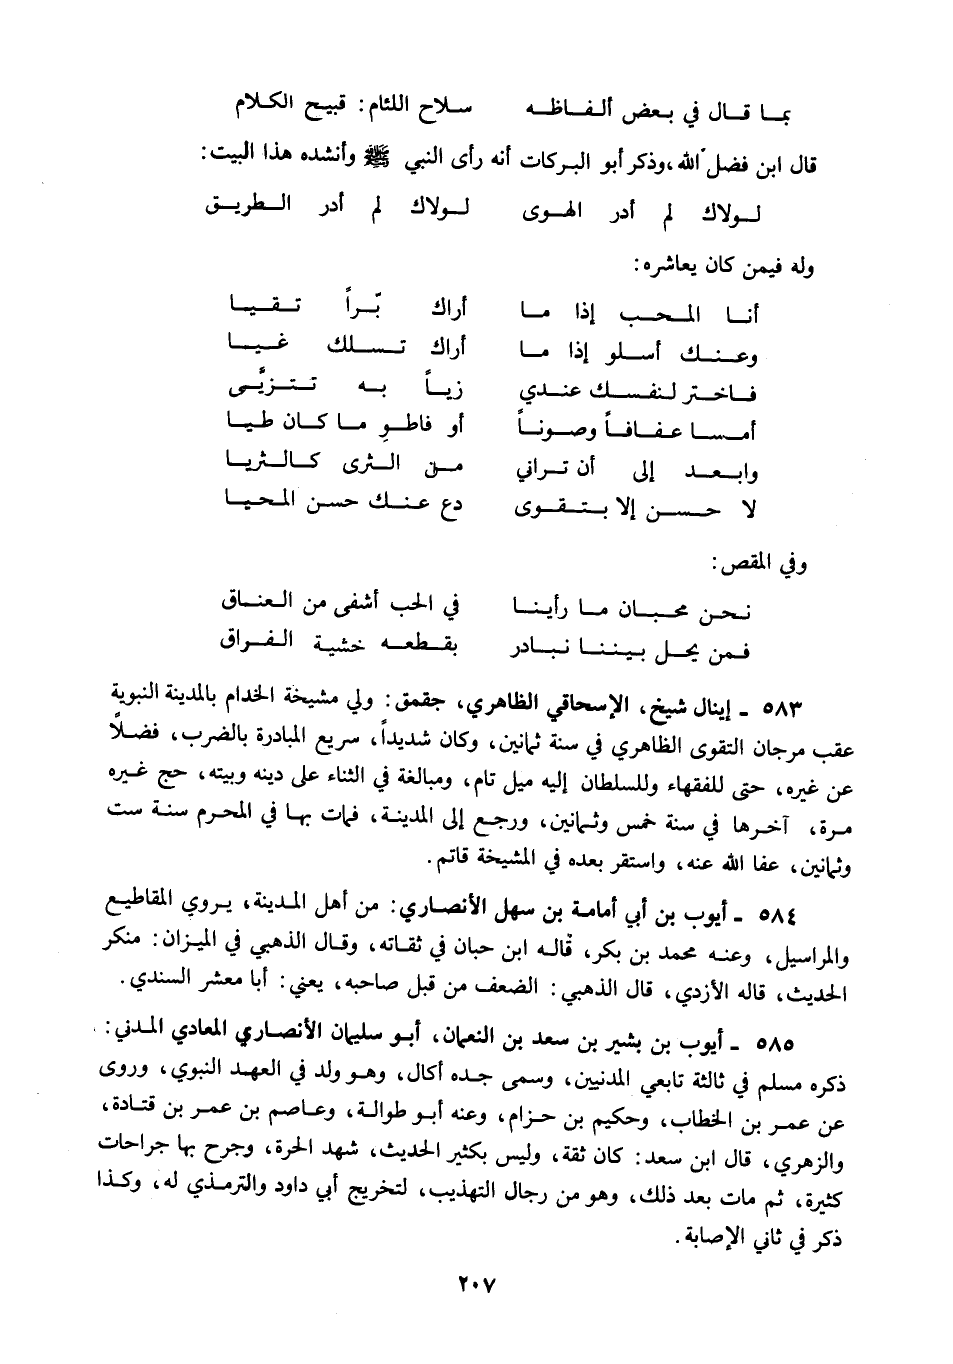 بما قال في بعض ألفاظه سلاح اللئام: قبيح الكلام
قال ابن فضل الله، وذكر أبو البركات أنه رأى النبي ﷺ وأنشده هذا البيت:
لولاك لم أدر الهوى لولاك لم أدر الطريق
وله فيمن كان يعاشره:
أنا المحب إذا ما أراك بّراً تقيا
وعنك أسلو إذا ما أراك تسلك غيا
فاختر لنفسك عندي زياً به تتزيَّى
أمسا عفافاً وصوناً أو فاطوِ ما كان طيا
وابعد إلى أن تراني من الثرى كالثريا
لا حسن إلا بتقوى دع عنك حسن المحيا
وفي المقص:
نحن محبان ما رأينا في الحب أشفى من العناق
فمن يحل بيننا نبادر بقطعه خشية الفراق
٥٨٣ ـ إينال شيخ، الإسحاقي الظاهري، جقمق: ولي مشيخة الخدام بالمدينة النبوية
عقب مرجان التقوى الظاهري في سنة ثمانين، وكان شديداً، سريع المبادرة بالضرب، فضلاً
عن غيره، حتى للفقهاء وللسلطان إليه ميل تام، ومبالغة في الثناء على دينه وبيته، حج غيره
مرة، آخرها في سنة خمس وثمانين، ورجع إلى المدينة، فمات بها في المحرم سنة ست
وثمانين، عفا الله عنه، واستقر بعده في المشيخة قاتم.
٥٨٤ ـ أيوب بن أبي أمامة بن سهل الأنصاري: من أهل المدينة، يروي المقاطيع
والمراسيل، وعنه محمد بن بكر، قاله ابن حبان في ثقاته، وقال الذهبي في الميزان: منكر
الحديث، قاله الأزدي، قال الذهبي: الضعف من قبل صاحبه، يعني: أبا معشر السندي.
٥٨٥ ـ أيوب بن بشير بن سعد بن النعمان، أبو سليمان الأنصاري المعادي المدني:
ذكره مسلم في ثالثة تابعي المدنيين، وسمى جده أكال، وهو ولد في العهد النبوي، وروى
عن عمر بن الخطاب، وحكيم بن حزام، وعنه أبو طوالة، وعاصم بن عمر بن قتادة،
والزهري، قال ابن سعد: كان ثقة، وليس بكثير الحديث، شهد الحرة، وجرح بها جراحات
كثيرة، ثم مات بعد ذلك، وهو من رجال التهذيب، لتخريج أبي داود والترمذي له، وكذا
ذكر في ثاني الإصابة.
٢٠٧